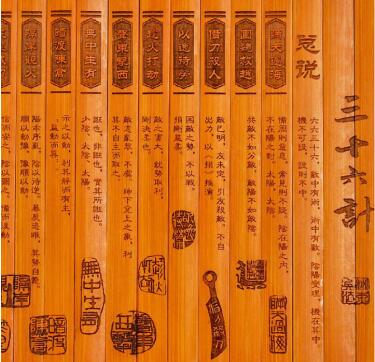 三十六計
总说
六六三十六，數中有術，術中有數。陰陽燮理，機在其中。
機不可設，設則不中。
瞞天過海
備周則意怠，常見則不疑。陰在陽之內，
不在陽之對。太陽，太陰。
圍魏救趙
共敵不如分敵，敵陽不如敵陰。
借刀殺人
敵已明，友未定，引友殺敵，不自
出力，以《損》推演。
以逸待勞
困敵之勢，不以戰，
損剛益柔。
趁火打劫
敵之害大，就勢取利，
剛決柔也。
聲東擊西
敵志亂萃，不虞，坤下兌上之象，利
其不自主而取之。
無中生有
誑也，非誑也，實其所誑也。
少陰，太陰，太陽。
暗渡陳倉
示之以動，利其靜而有主，
益動而巽。
隔岸觀火
陽乖序亂，陰以待逆。暴戾恣睢，其勢自斃。
順以動豫，豫順以動。
無中生有
借刀殺人
瞞天過海